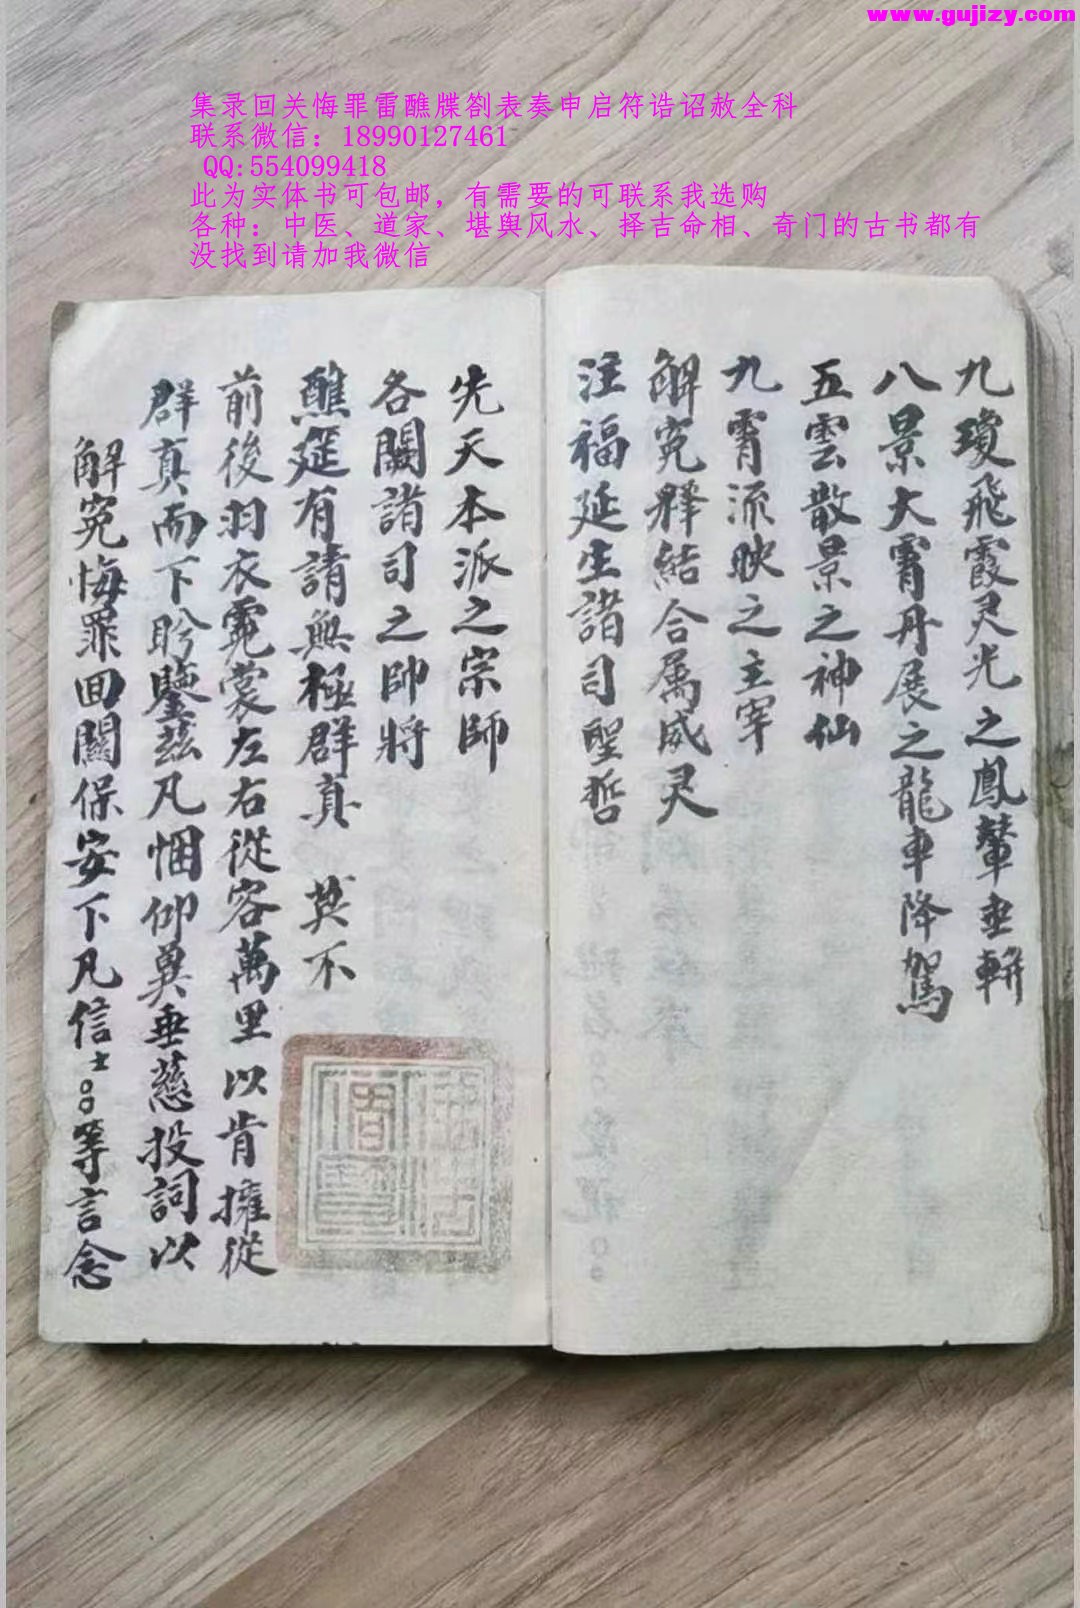 www.gujizy.com
集录回关悔罪雷醮牒劄表奏申启符诰诏赦全科
联系微信：18990127461
QQ:554099418
此为实体书可包邮，有需要的可联系我选购
各种：中医、道家、堪舆风水、择吉命相、奇门的古书都有
没找到请加我微信
九瓊飛霞灵光之鳳輦垂軿
八景大霄丹展之龍車降駕
五雲散景之神仙
九霄流映之主宰
解冤釋結合属威灵
注福延生諸司聖哲
先天本派之宗師
各闕諸司之帥將
醮筵有請無極群真 莫不
前後羽衣霓裳左右從容萬里以肯擁從
群真而下盻鑒茲凡悃仰冀垂慈投詞以
解冤悔罪回關保安下凡信士○○等言念